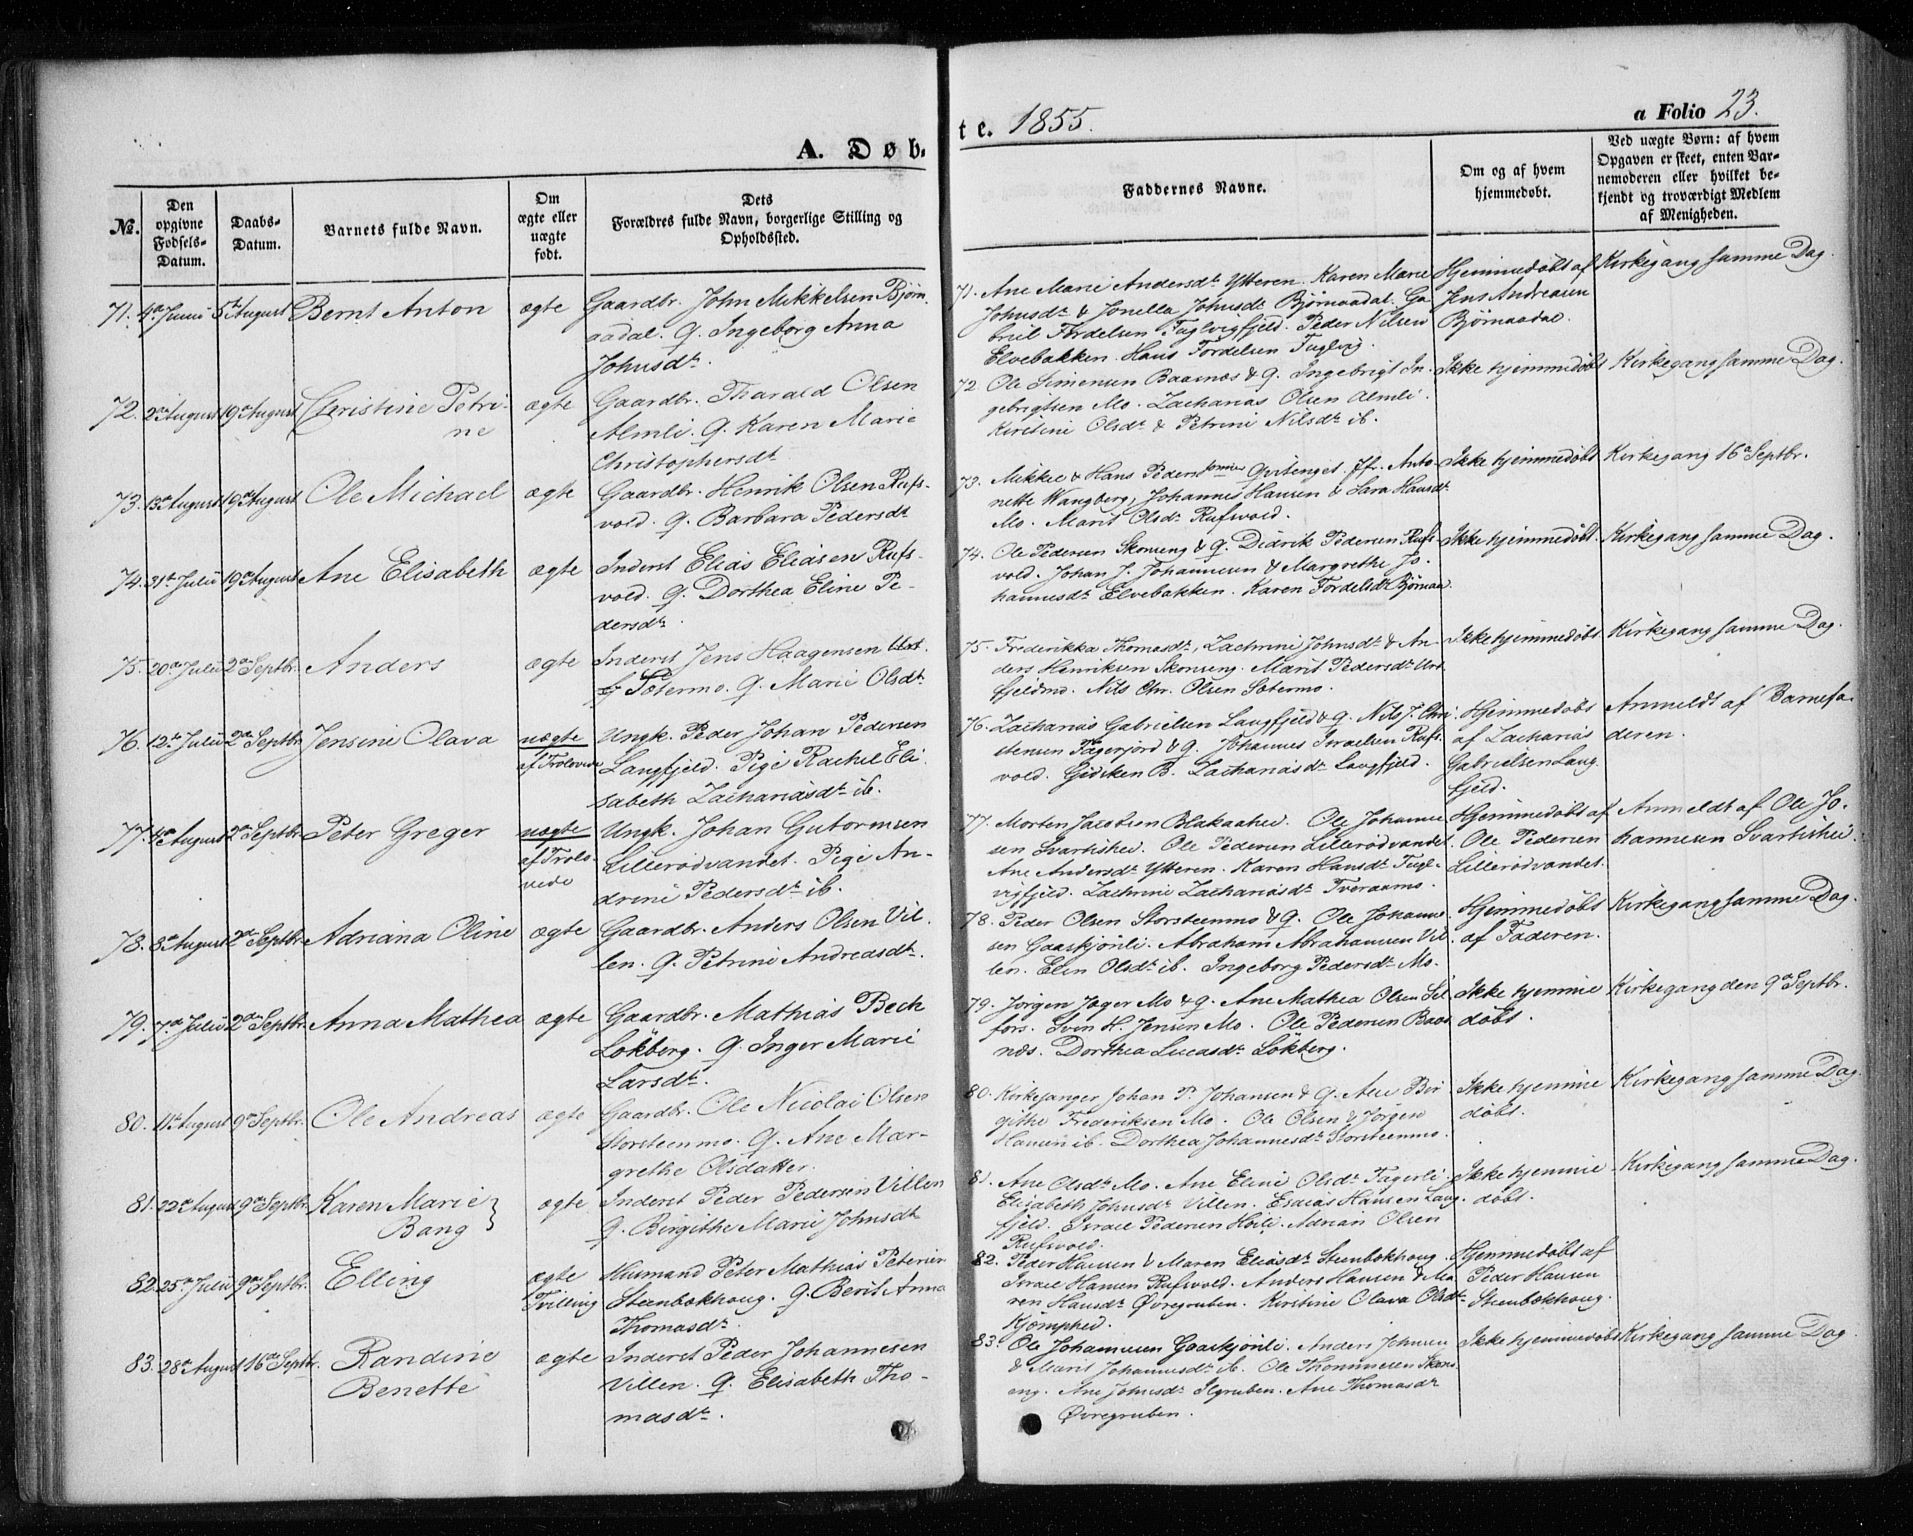 A. Døb-
te. 1855.
a Folio 23.
№.
Den
opgivne
Fødsels-
Datum.
Daabs-
Datum.
Barnets fulde Navn.
Om
ægte eller
uægte
født.
Dets
Forældres fulde Navn, borgerlige Stilling og
Opholdssted.
Faddernes Navne.
Om og af hvem
hjemmedøbt.
Ved uægte Børn: af hvem
Opgaven er skeet, enten Bar-
nemoderen eller hvilket be-
kjendt og troværdigt Medlem
af Menigheden.
71. 4de Junii 5te August Bernt Anton ægte Gaardbr. John Mikkelsen Bjørn
aadal. Q. Ingeborg Anna
Johnsdtr.
71. Ane Marie Andersdtr Ytteren. Karen Marie
Johnsdtr & Jonella Johnsdtr Bjørnaadal. Ga
briel Fordelsen Fuglvigfjeld. Peder Nilsen
Elvebakken. Hans Fordelsen Fuglvig.
Hjemmedøbt af
Jens Andreasen
Bjørnaadal.
Kirkegang samme Dag.
72. 2den August 19de August Christine Petri-
ne
ægte Gaardbr. Tharald Olsen
Almli. Q. Karen Marie
Christophersdtr
72. Ole Simensen Baasnæs & Q. Ingebrigt In-
gebrigtsen Mo. Zacharias Olsen Almli.
Kirstine Olsdtr & Petrine Nilsdtr ib.
Ikke hjemmedøbt
Kirkegang samme Dag.
73. 13de August 19de August Ole Michael ægte Gaardbr. Henrik Olsen Rufs-
vold. Q. Barbara Pedersdtr
73. Mikkel & Hans Peders Qvitenget. Jfr. Anto-
nette Wangberg, Johannes Hansen & Sara Hansdtr
Mo. Marit Olsdtr Rufsvold.
Ikke hjemmedøbt
Kirkegang 16de Septbr.
74. 31te Julii 19de August Ane Elisabeth ægte Inderst Elias Eliasen Rufs-
vold. Q. Dorthea Eline Pe-
dersdtr.
74. Ole Pedersen Skonseng & Q. Didrik Pedersen Rufs-
vold. Johan J. Johannesen & Margrethe Jo-
hannesdtr Elvebakken. Karen Fordelsdtr Bjørnaa
Ikke hjemmedøbt.
Kirkegang samme Dag.
75. 20de Julii 2den Septbr. Anders ægte Inderst Jens Haagensen
Sætermo. Q. Marie Olsdtr.
75. Frederikka Thomasdtr, Zachrine Johnsdtr & An-
ders Henriksen Skonseng. Marit Pedersdtr Urt
fjeldmo. Nils Chr. Olsen Sætermo.
Ikke hjemmedøbt
Kirkegang samme Dag.
76. 12te Julii 2den Septbr. Jensine Olava uægte
af Trolovede
Ungk. Peder Johan Pedersen
Langfjeld. Pige Rachel Eli-
sabeth Zachariasdtr ib.
76. Zacharias Gabrielsen Langfjeld & Q. Nils J. Chri
stensen Fagerjord & Q. Johannes Israelsen Rufs-
vold. Gidsken B. Zachariasdtr Langfjeld.
Hjemmedøbt
af Zacharias
Gabrielsen Lang
fjeld.
Anmeldt af Barnefa-
deren.
77. 4de August 2den Septbr Peter Greger uægte
af Trolo-
vede
Ungk. Johan Gutormsen
Lillerødvandet. Pige An-
drine Pedersdtr ib.
77. Morten Jacobsen Blakaahei. Ole Johanne
sen Svartishei. Ole Pedersen Lillerødvandet.
Ane Andersdtr Ytteren. Karen Hansdtr Fugl-
vigfjeld. Zachrine Zachariasdtr Tveraamo.
Hjemmedøbt af
Ole Pedersen
Lillerødvandet.
Anmeldt af Ole Jo-
hannesen Svartishei.
78. 8de August 2den Septbr. Adriana Oline ægte Gaardbr. Anders Olsen Vil-
len. Q. Petrine Andreasdtr.
78. Peder Olsen Storsteenmo & Q. Ole Johanne
sen Gaaskjønli. Abraham Abrahamsen Vil-
len. Elen Olsdtr ib. Ingeborg Pedersdtr Mo.
Hjemmedøbt
af Faderen.
Kirkegang samme Dag.
79. 7de Julii 2den Septbr. Anna Mathea ægte Gaardbr. Mathias Bech
Løkberg. Q. Inger Marie
Larsdtr.
79. Jørgen Jager Mo & Q. Ane Mathea Olsen Sel
fors. Sven H. Jensen Mo. Ole Pedersen Baas
næs. Dorthea Lucasdtr Løkberg.
Ikke hjemme
døbt.
Kirkegang den 9de Septbr.
80. 11te August 9de Septbr. Ole Andreas ægte Gaardbr. Ole Nicolai Olsen
Storsteenmo. Q. Ane Mar-
grethe Olsdatter.
80. Kirkesanger Johan P. Johansen & Q. Ane Bir
githe Frederiksen Mo. Ole Olsen & Jørgen
Hansen ib. Dorthea Johannesdtr Storsteenmo.
Ikke hjemme
døbt.
Kirkegang samme Dag.
81. 22de August 9de Septbr. Karen Marie
Bang
ægte Inderst Peder Pedersen Villen
Q. Birgithe Marie Johnsdtr
81. Ane Olsdtr Mo. Ane Eline Olsdtr Fagerli.
Elisabeth Johnsdtr Villen. Esaias Hansen Lang
fjeld. Israel Pedersen Høili. Adrian Olsen
Rufsvold.
Ikke hjemme
døbt.
Kirkegang samme Dag.
82. 25de Julii 9de Septbr. Elling ægte
Tvilling
Husmand Peter Mathias Petersen
Steenbokhoug. Q. Berit Anna
Thomasdtr.
82. Peder Hansen & Maren Eliasdtr Steenbokhoug.
Israel Hansen Rufsvold. Anders Hansen & Ma
ren Hansdtr Øvregruben. Kirstine Olava Olsdtr
Kjømphei.
Hjemmedøbt af
Peder Hansen
Steenbokhoug.
83. 28de August 16de Septbr. Randine
Benette
ægte Inderst Peder Johannesen
Villen. Q. Elisabeth Tho-
masdtr.
83. Ole Johannesen Gaaskjønli. Anders Johnsen
& Marit Johannesdtr ib. Ole Thommesen Skons
eng. Ane Johnsdtr Ilgruben. Ane Thomasdtr
Øvregruben.
Ikke hjemmedøbt
Kirkegang samme Dag